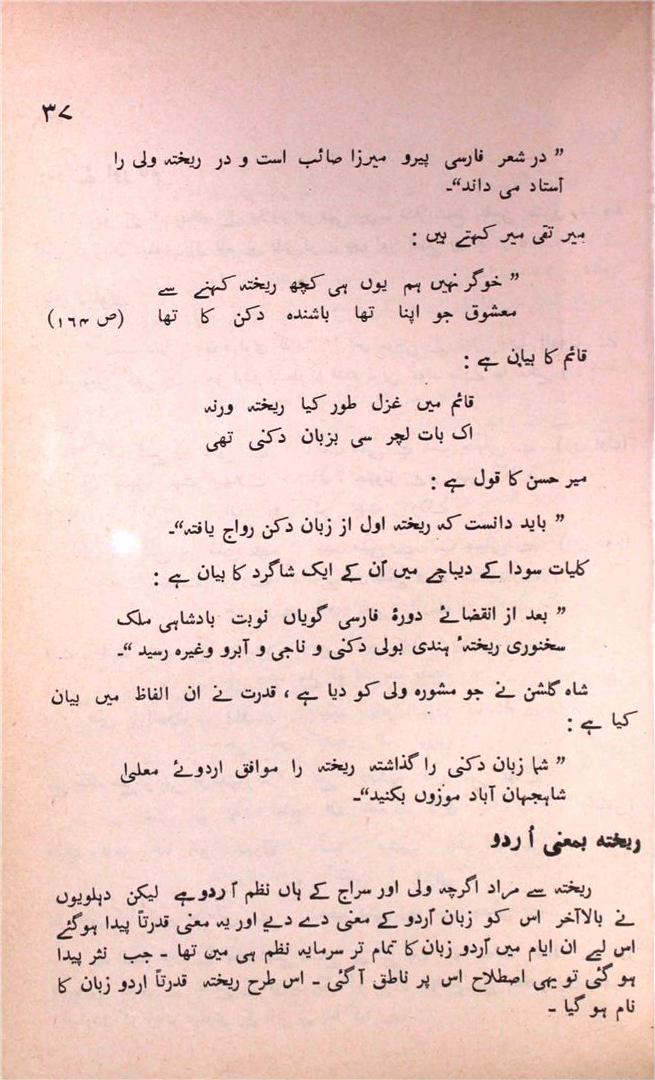 ۳۷
” در شعر فارسی پیرو میرزا صائب است و در ریخته ولی را
اُستاد می داند“۔
میر تقی میر کہتے ہیں :
” خوگر نہیں ہم یوں ہی کچھ ریختہ کہنے سے
معشوق جو اپنا تھا باشندہ دکن کا تھا (ص ۱۶۴)
قائم کا بیان ہے :
قائم میں غزل طور کیا ریختہ ورنہ
اک بات لچر سی بزبان دکنی تھی
میر حسن کا قول ہے :
” باید دانست کہ ریختہ اول از زبان دکن رواج یافتہ“۔
کلیات سودا کے دیباچے میں اُن کے ایک شاگرد کا بیان ہے :
” بعد از انقضائے دورۂ فارسی گویاں نوبت بادشاہی ملک
سخنوری ریختۂ ہندی بولی دکنی و ناجی و آبرو وغیرہ رسید “۔
شاہ گلشن نے جو مشورہ ولی کو دیا ہے ، قدرت نے ان الفاظ میں بیان
کیا ہے :
” شما زبان دکنی را گذاشتہ ریختہ را موافق اردوئے معلیٰ
شاہجہان آباد موزوں بکنید“۔
ریختہ بمعنی اُردو
ریختہ سے مراد اگرچہ ولی اور سراج کے ہاں نظم اُردو ہے لیکن دہلویوں
نے بالآخر اس کو زبان اُردو کے معنی دے دیے اور یہ معنی قدرتاً پیدا ہوگئے
اس لیے ان ایام میں اُردو زبان کا تمام تر سرمایہ نظم ہی میں تھا ۔ جب نثر پیدا
ہو گئی تو یہی اصطلاح اس پر ناطق آ گئی ۔ اس طرح ریختہ قدرتاً اردو زبان کا
نام ہو گیا ۔